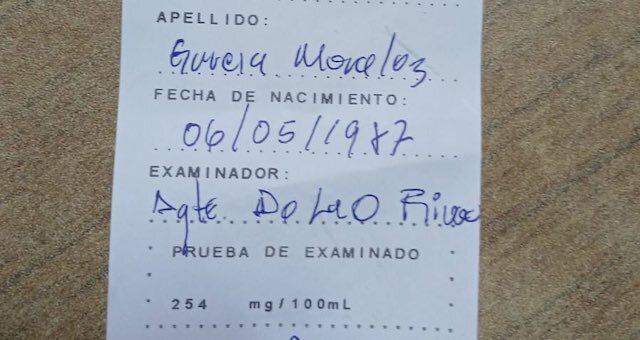 APELLIDO:
Garcia Morales
FECHA DE NACIMIENTO:
06/05/1987
EXAMINADOR:
Agte. De La O Rivas
PRUEBA DE EXAMINADO
254 mg/100mL